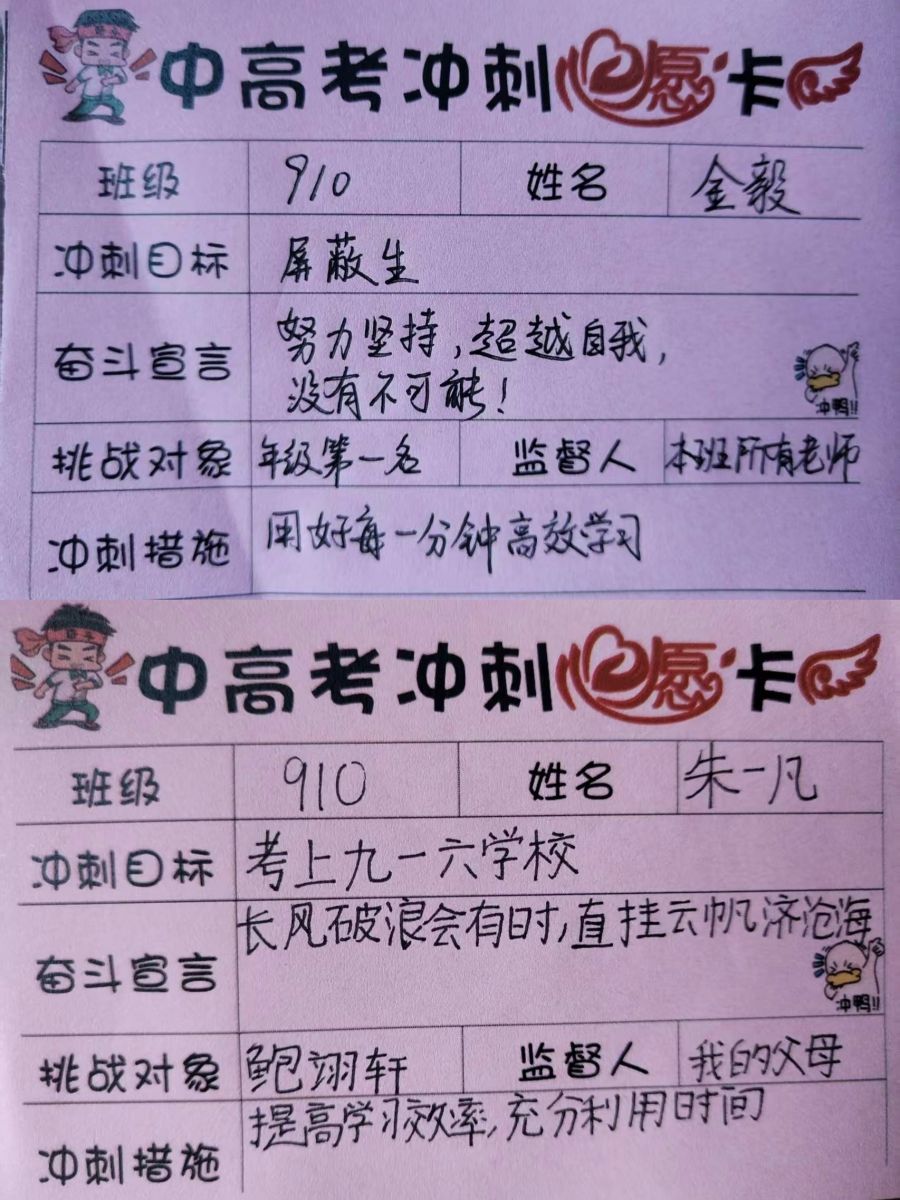 中高考冲刺心愿卡
班级 910 姓名 金毅
冲刺目标 屏蔽生
奋斗宣言 努力坚持，超越自我，
没有不可能！
冲鸭!!
挑战对象 年级第一名 监督人 本班所有老师
冲刺措施 用好每一分钟高效学习
中高考冲刺心愿卡
班级 910 姓名 朱一凡
冲刺目标 考上九一六学校
奋斗宣言 长风破浪会有时,直挂云帆济沧海
冲鸭!!
挑战对象 鲍翊轩 监督人 我的父母
冲刺措施 提高学习效率,充分利用时间